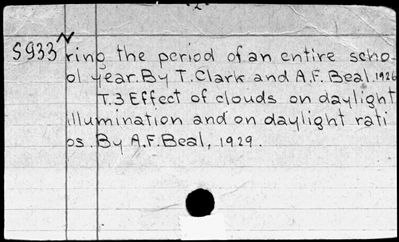 -2-
S933 ring the period of an entire scho-
ol year. By T. Clark and A.F. Beal, 1926
T.3 Effect of clouds on daylight
illumination and on daylight rati
os. By A.F. Beal, 1929.